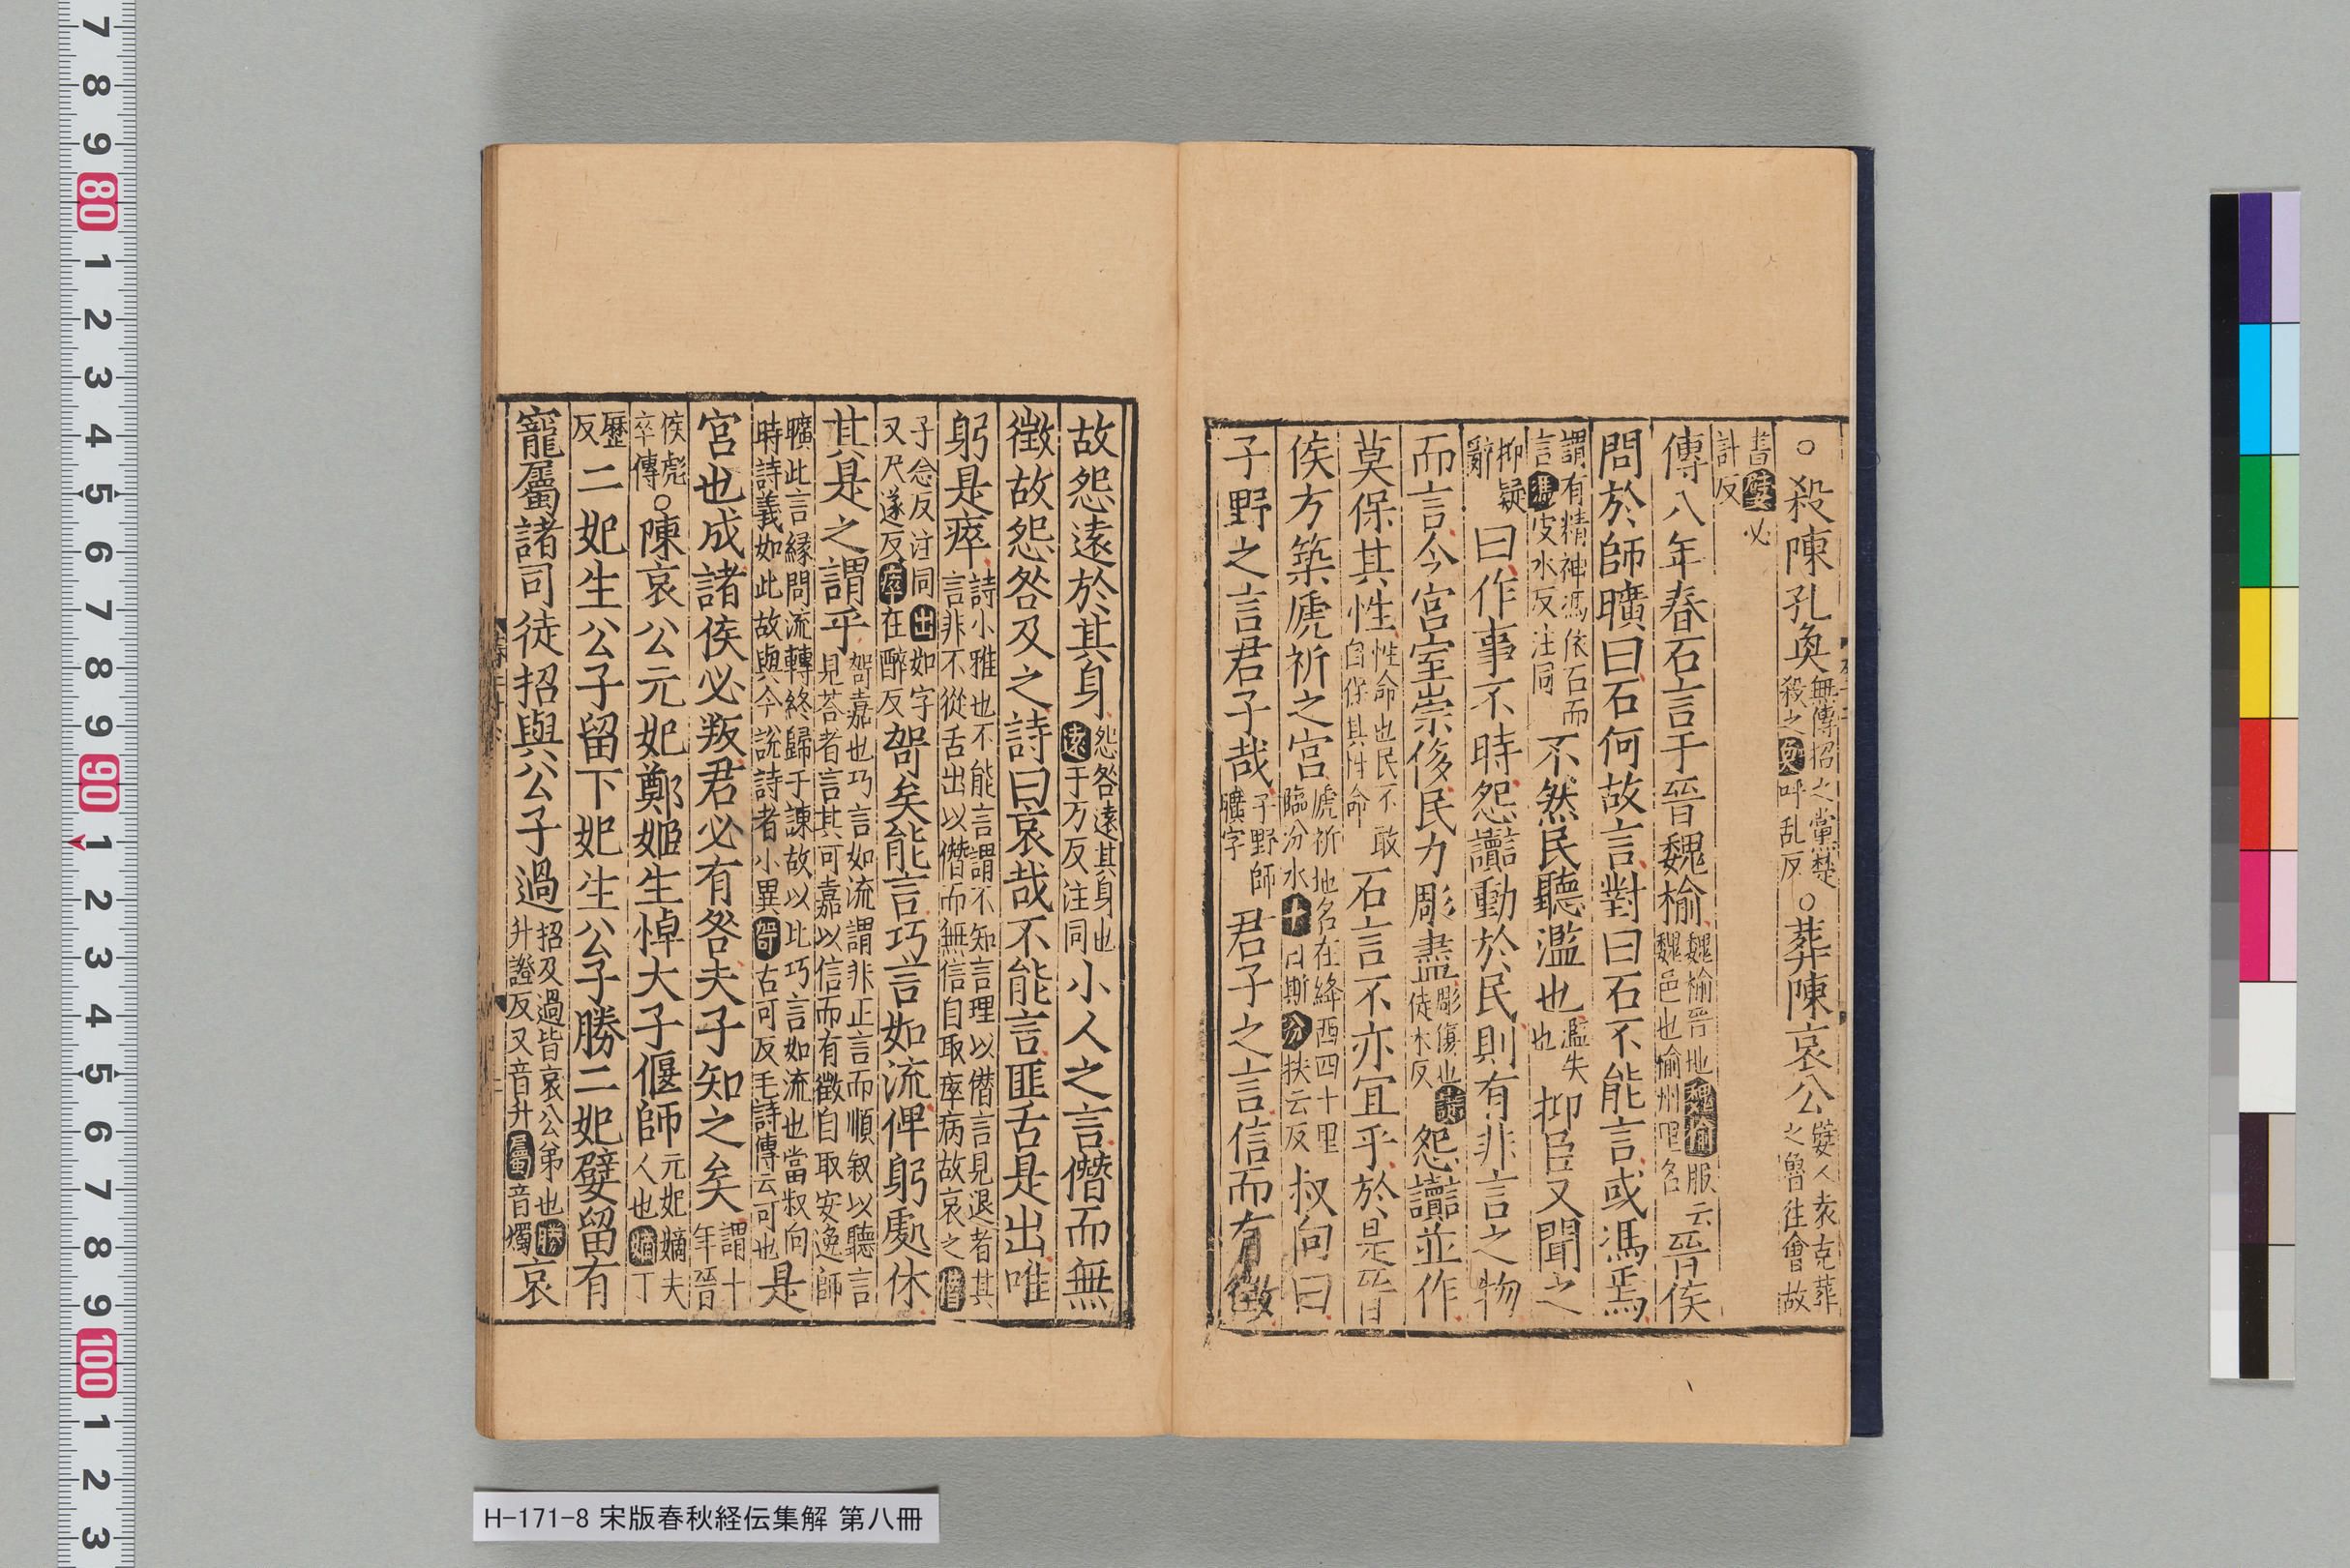 ○殺陳孔奐無傳招之黨楚殺之奐呼乱反○葬陳哀公嬖人袁克葬之魯往會故
書嬖必計反
傳八年春石言于晉魏榆魏榆晉地魏邑也榆州里名魏榆服云晉侯
問於師曠曰石何故言對曰石不能言或馮焉
謂有精神馮依石而言馮皮水反注同不然民聽濫也濫失也抑臣又聞之
抑疑辭曰作事不時怨讟動於民則有非言之物
而言今宮室崇侈民力彫盡彫傷也讟徒木反怨讟並作
莫保其性性命也民不敢自保其性命石言不亦宜乎於是晉
侯方築虒祁之宮虒祁地名在絳西四十里臨汾水十曰斯汾扶云反叔向曰
子野之言君子哉子野師曠字君子之言信而有徵
故怨遠於其身怨咎遠其身也遠于万反注同小人之言僭而無
徵故怨咎及之詩曰哀哉不能言匪舌是出唯
躬是瘁詩小雅也不能言謂不知言理以僭言見退者其言非不從舌出以僭而無信自取瘁病故哀之僭
子念反注同出如字又尺遂反瘁在醉反哿矣能言巧言如流俾躬處休
其是之謂乎哿嘉也巧言如流謂非正言而順叙以聽言見荅者言其可嘉以信而有徵自取安逸師
曠此言縁問流轉終歸于諫故以比巧言如流也當叔向時詩義如此故與今說詩者小異哿古可反毛詩傳云可也是
宮也成諸侯必叛君必有咎夫子知之矣謂十年晉
侯彪卒傳○陳哀公元妃鄭姬生悼大子偃師元妃嫡夫人也嫡丁
歷反二妃生公子留下妃生公子勝二妃嬖留有
寵屬諸司徒招與公子過招及過皆哀公弟也勝升證反又音升屬音燭哀
H-171-8 宋版春秋経伝集解 第八冊
7
8
9
80
1
2
3
4
5
6
7
8
9
90
1
2
3
4
5
6
7
8
9
100
1
2
3